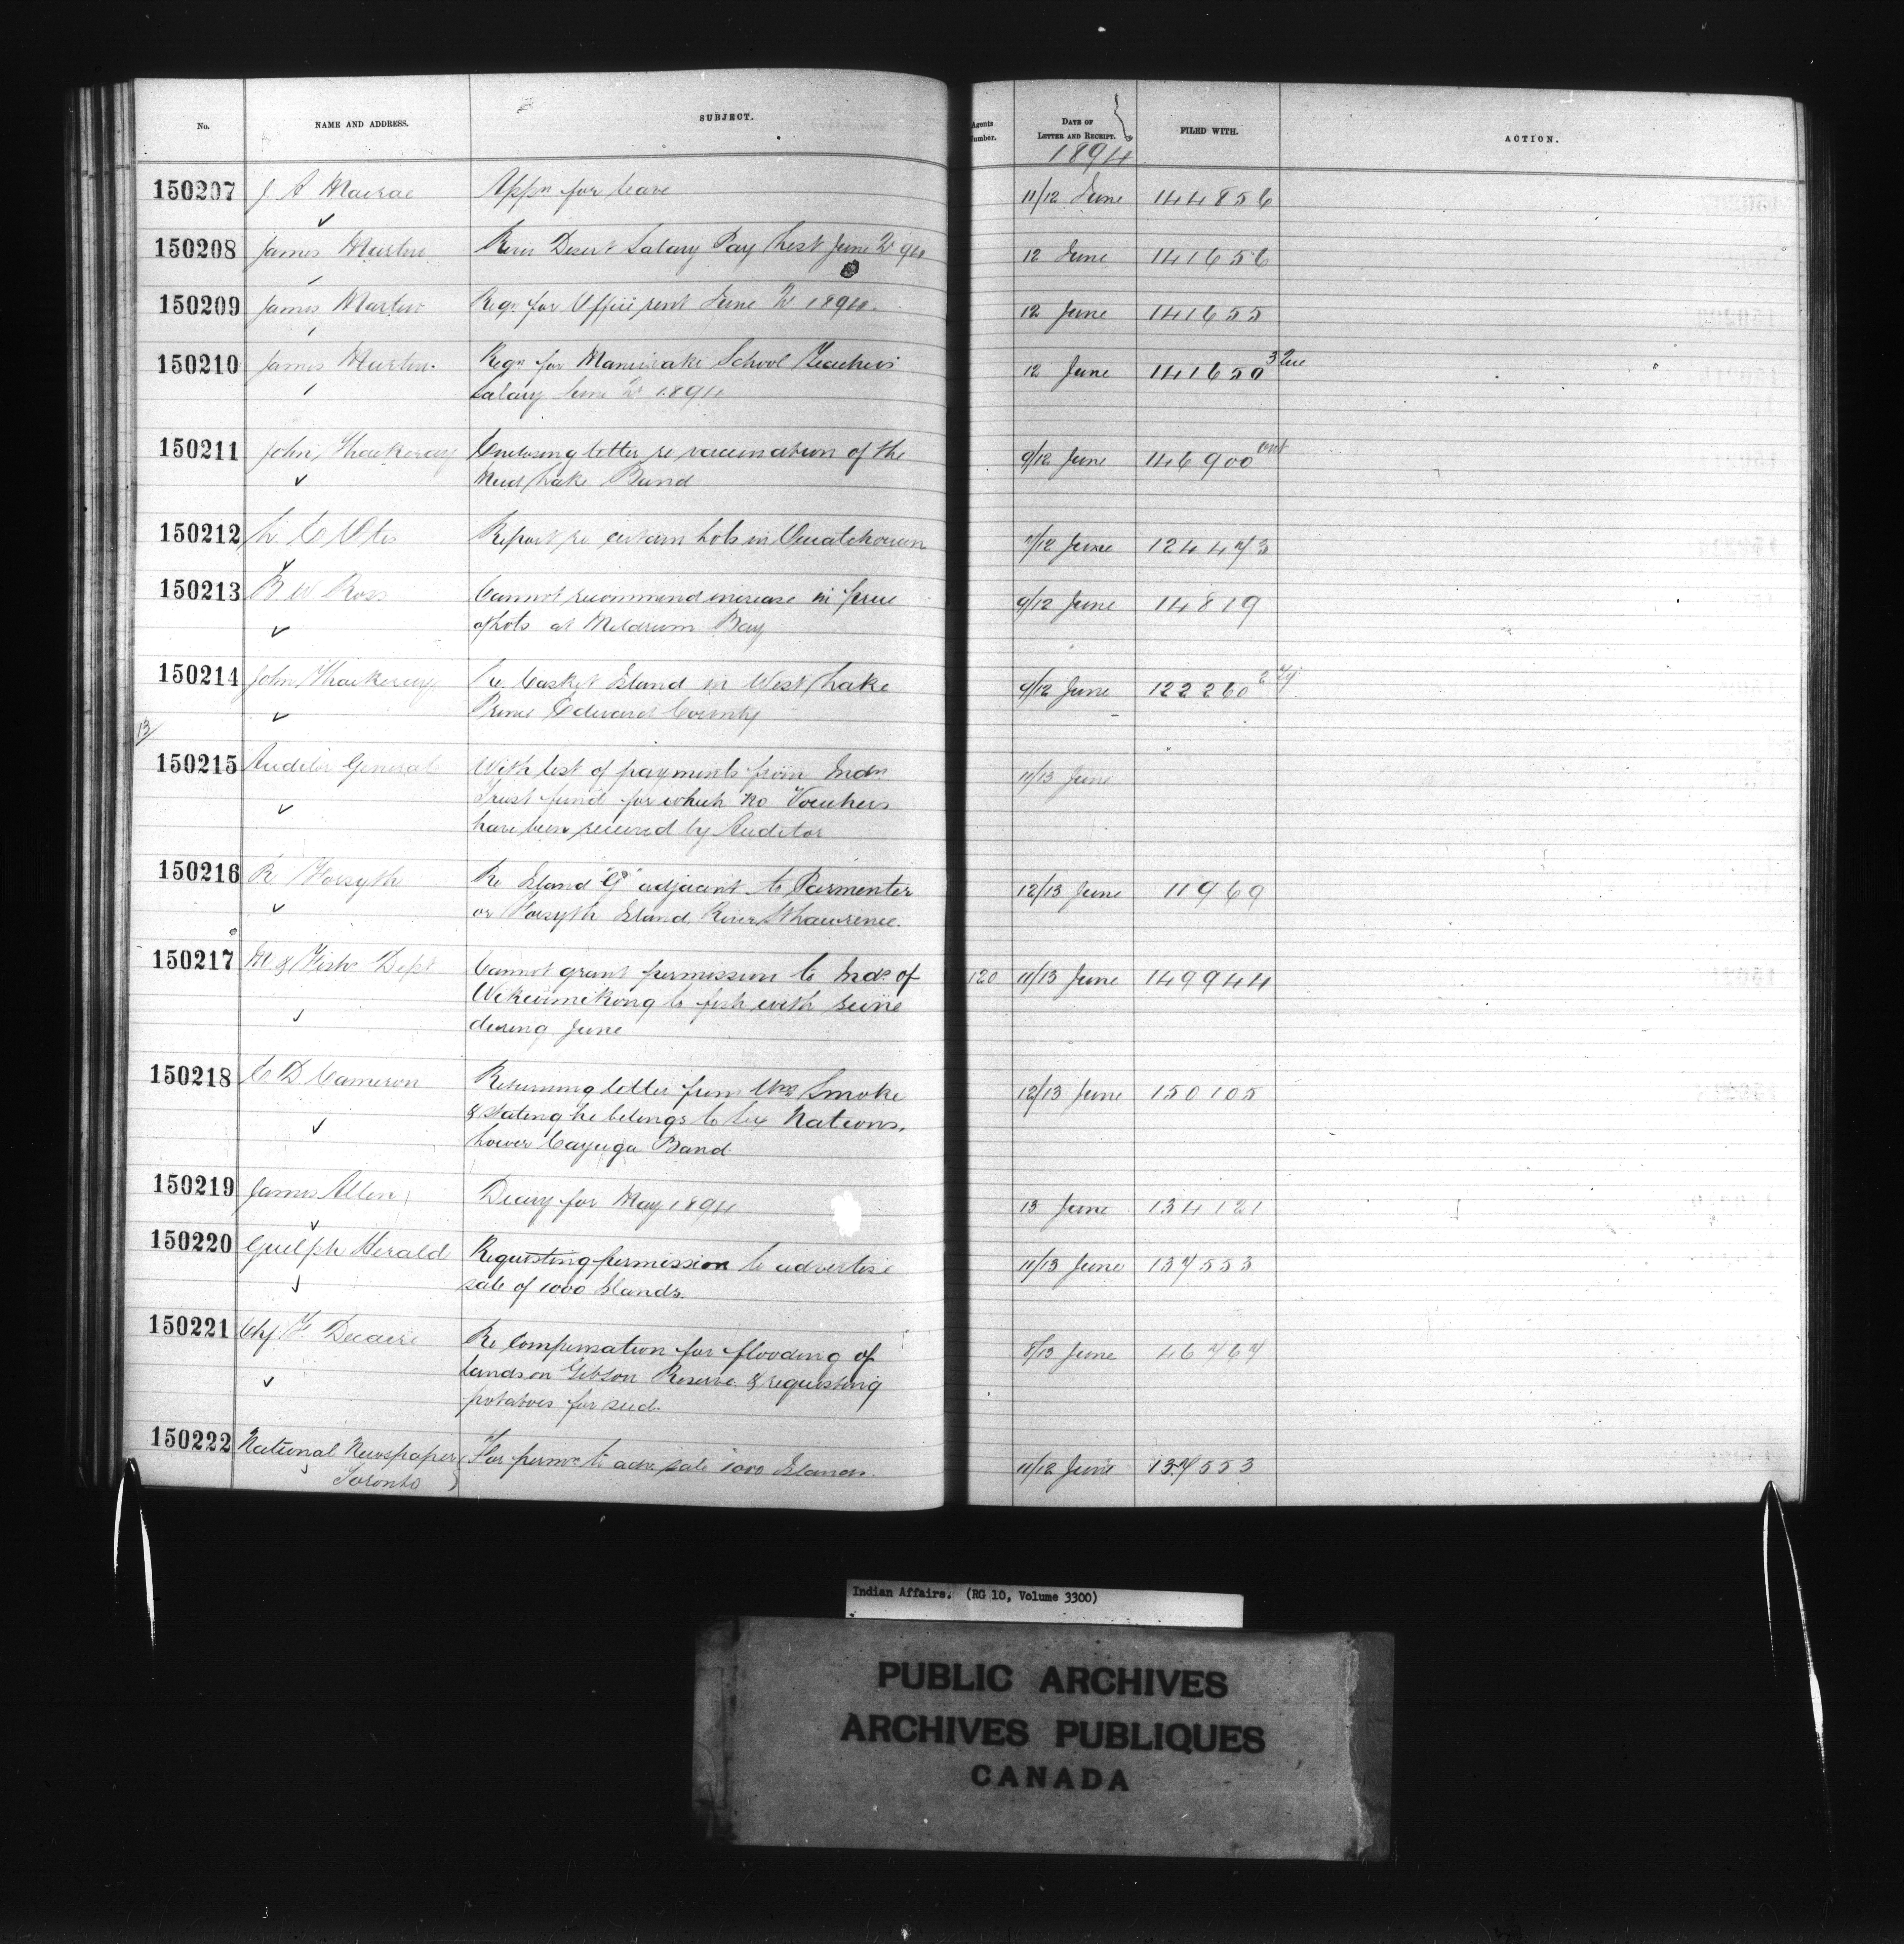 No. NAME AND ADDRESS. SUBJECT. Agents Number. DATE OF LETTER AND RECEIPT. FILED WITH. ACTION.
1894
150207 J. A Macrae Appn for leave 11/12 June 144856
150208 James Martin River Desert Salary Pay List June Qr 94 12 June 141656
150209 James Martin Reqn for Office rent June Qr 1894. 12 June 141655
150210 James Martin. Reqn for Maniwaki School Teachers 12 June 141650
Salary June Qr 1894
150211 John Thackeray Enclosing letter re vaccination of the 9/12 June 146900
Mud Lake Band
150212 L. E Otis Report re certain Lots in Ouiatchouan 7/12 June 124473
150213 B W Ross Cannot recommend increase in price 9/12 June 14819
of Lots at Meldrum Bay
150214 John Thackeray Re Casket Island in West Lake 9/12 June 122260
Prince Edward County
13/
150215 Auditor General With list of payments from Indn 11/13 June
Trust fund for which no Vouchers
have been received by Auditor
150216 R Forsyth Re Island "G" adjacent to Parmenter 12/13 June 11969
or Forsyth Island, River St Lawrence.
150217 M. & Fishs Dept Cannot grant permission to Inds of 120 11/13 June 149944
Wikwimikong to fish with seine
during June
150218 E D Cameron Returning letter from Wm Smoke 12/13 June 150105
& stating he belongs to Six Nations,
Lower Cayuga Band.
150219 James Allen Diary for May 1894 13 June 134121
150220 Guelph Herald Requesting permission to advertise 11/13 June 137553
sale of 1000 Islands.
150221 Chf F. Decaire Re Compensation for flooding of 8/13 June 46767
lands on Gibson Reserve & requesting
potatoes for seed.
150222 National Newspaper For permn to adve sale 1000 Islands. 11/12 June 137553
Toronto
Indian Affairs. (RG 10, Volume 3300)
PUBLIC ARCHIVES
ARCHIVES PUBLIQUES
CANADA